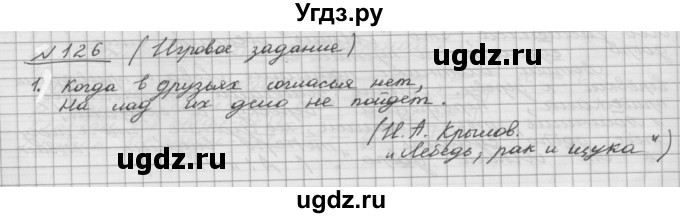 Угдз.ру
№126 (Игровое задание)
1.) Когда в друзьях согласья нет,
На лад их дело не пойдёт.
(И.А. Крылов.
„Лебедь, рак и щука")
uwgdz.ru uwgdz.ru
uwgdz.ru
Угдз.ру